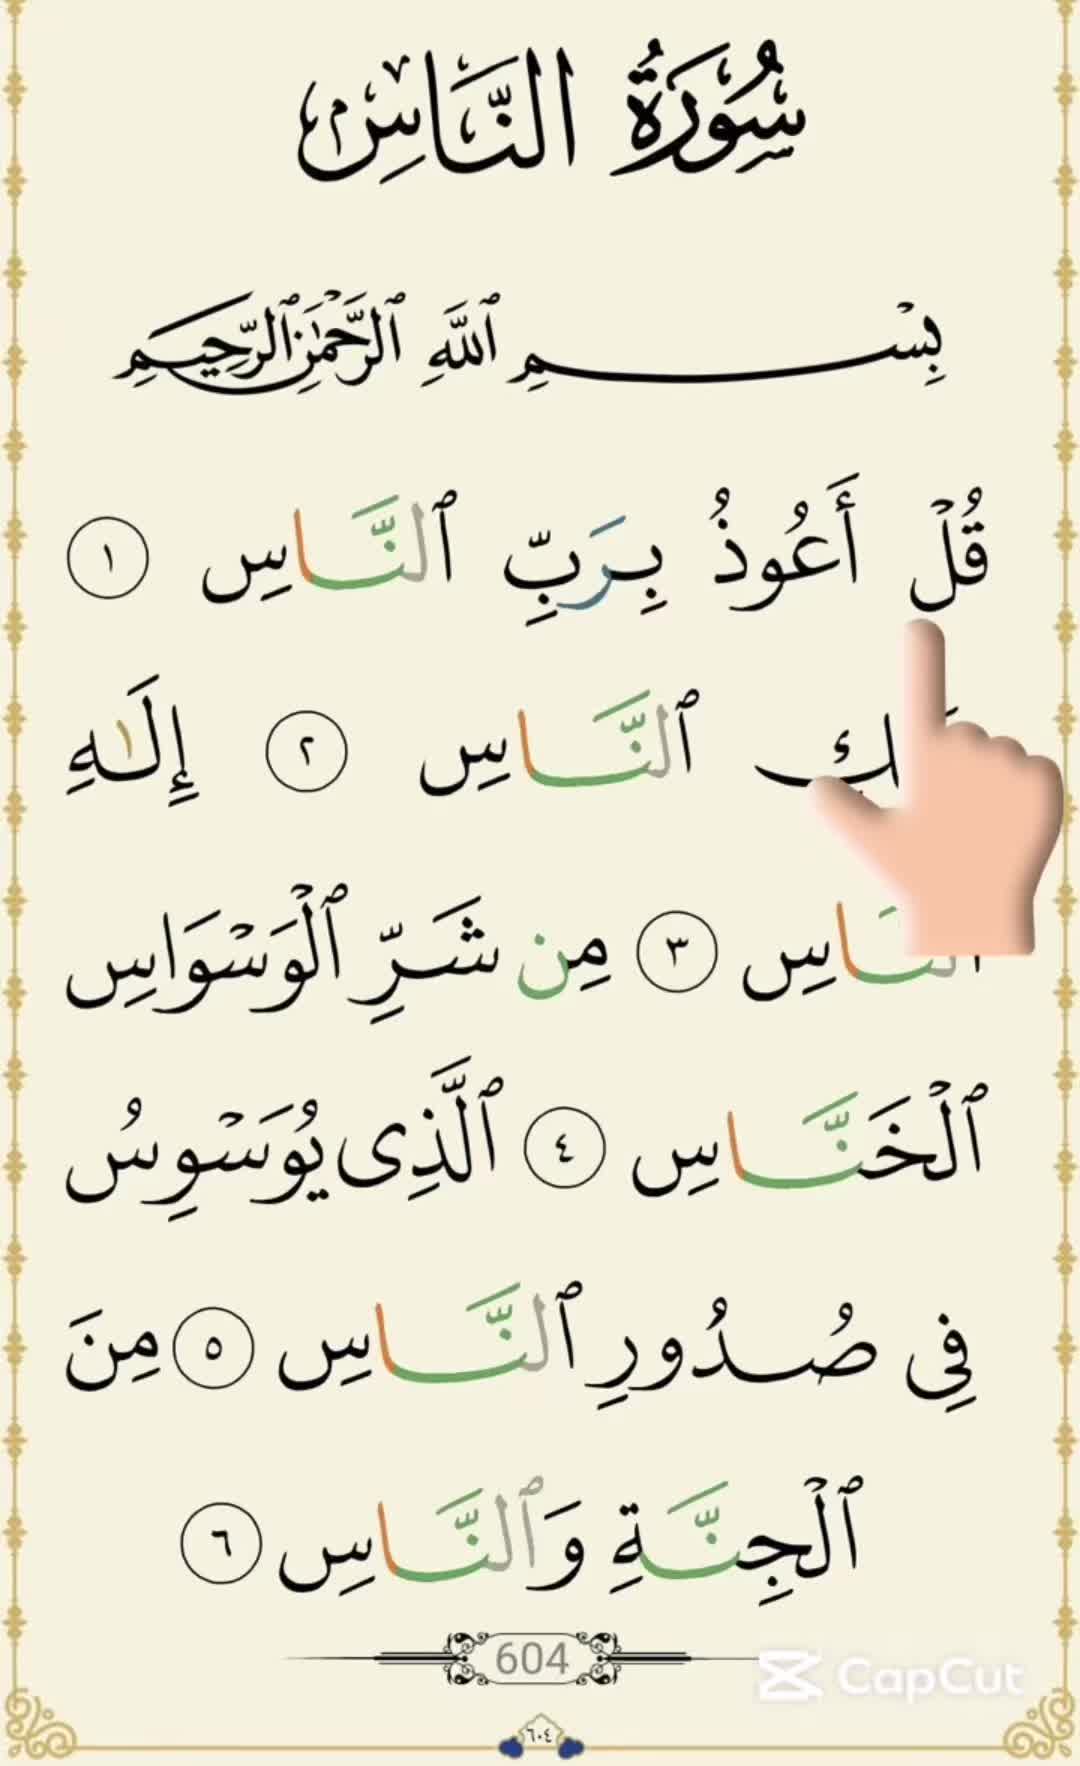 سُورَةُ النَّاسِ
بِسْمِ ٱللَّهِ ٱلرَّحْمَٰنِ ٱلرَّحِيمِ
قُلْ أَعُوذُ بِرَبِّ ٱلنَّاسِ ١
ٱلنَّاسِ ٢ إِلَٰهِ
ٱلنَّاسِ ٣ مِن شَرِّ ٱلْوَسْوَاسِ
ٱلْخَنَّاسِ ٤ ٱلَّذِى يُوَسْوِسُ
فِى صُدُورِ ٱلنَّاسِ ٥ مِنَ
ٱلْجِنَّةِ وَٱلنَّاسِ ٦
604
CapCut
٦٠٤